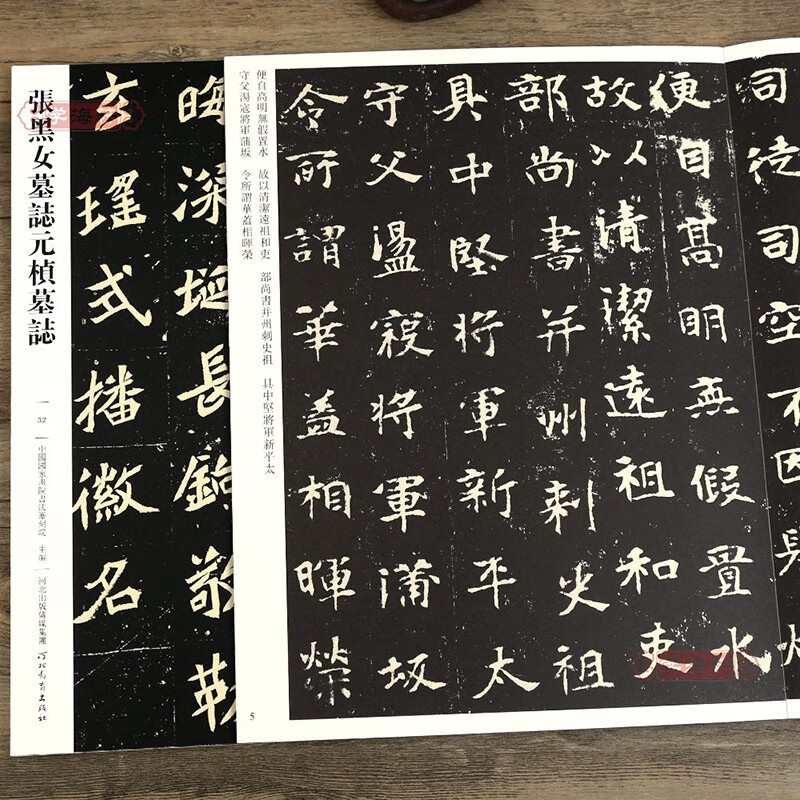 張黑女墓誌元楨墓誌
32
中國國家畫院書法篆刻院 主編
河北出版傳媒集團
河北教育出版社
晦深埏長鐍敬勒
玄瑤式播徽名
司徒司空不因
便自高明無假置水
故以清潔遠祖和吏
部尚書并州刺史祖
具中堅將軍新平太
守父盪寇將軍蒲坂
令所謂華蓋相暉榮
便自高明無假置水 故以清潔遠祖和吏 部尚書并州刺史祖 具中堅將軍新平太
守父湯寇將軍蒲坂 令所謂華蓋相暉榮
5